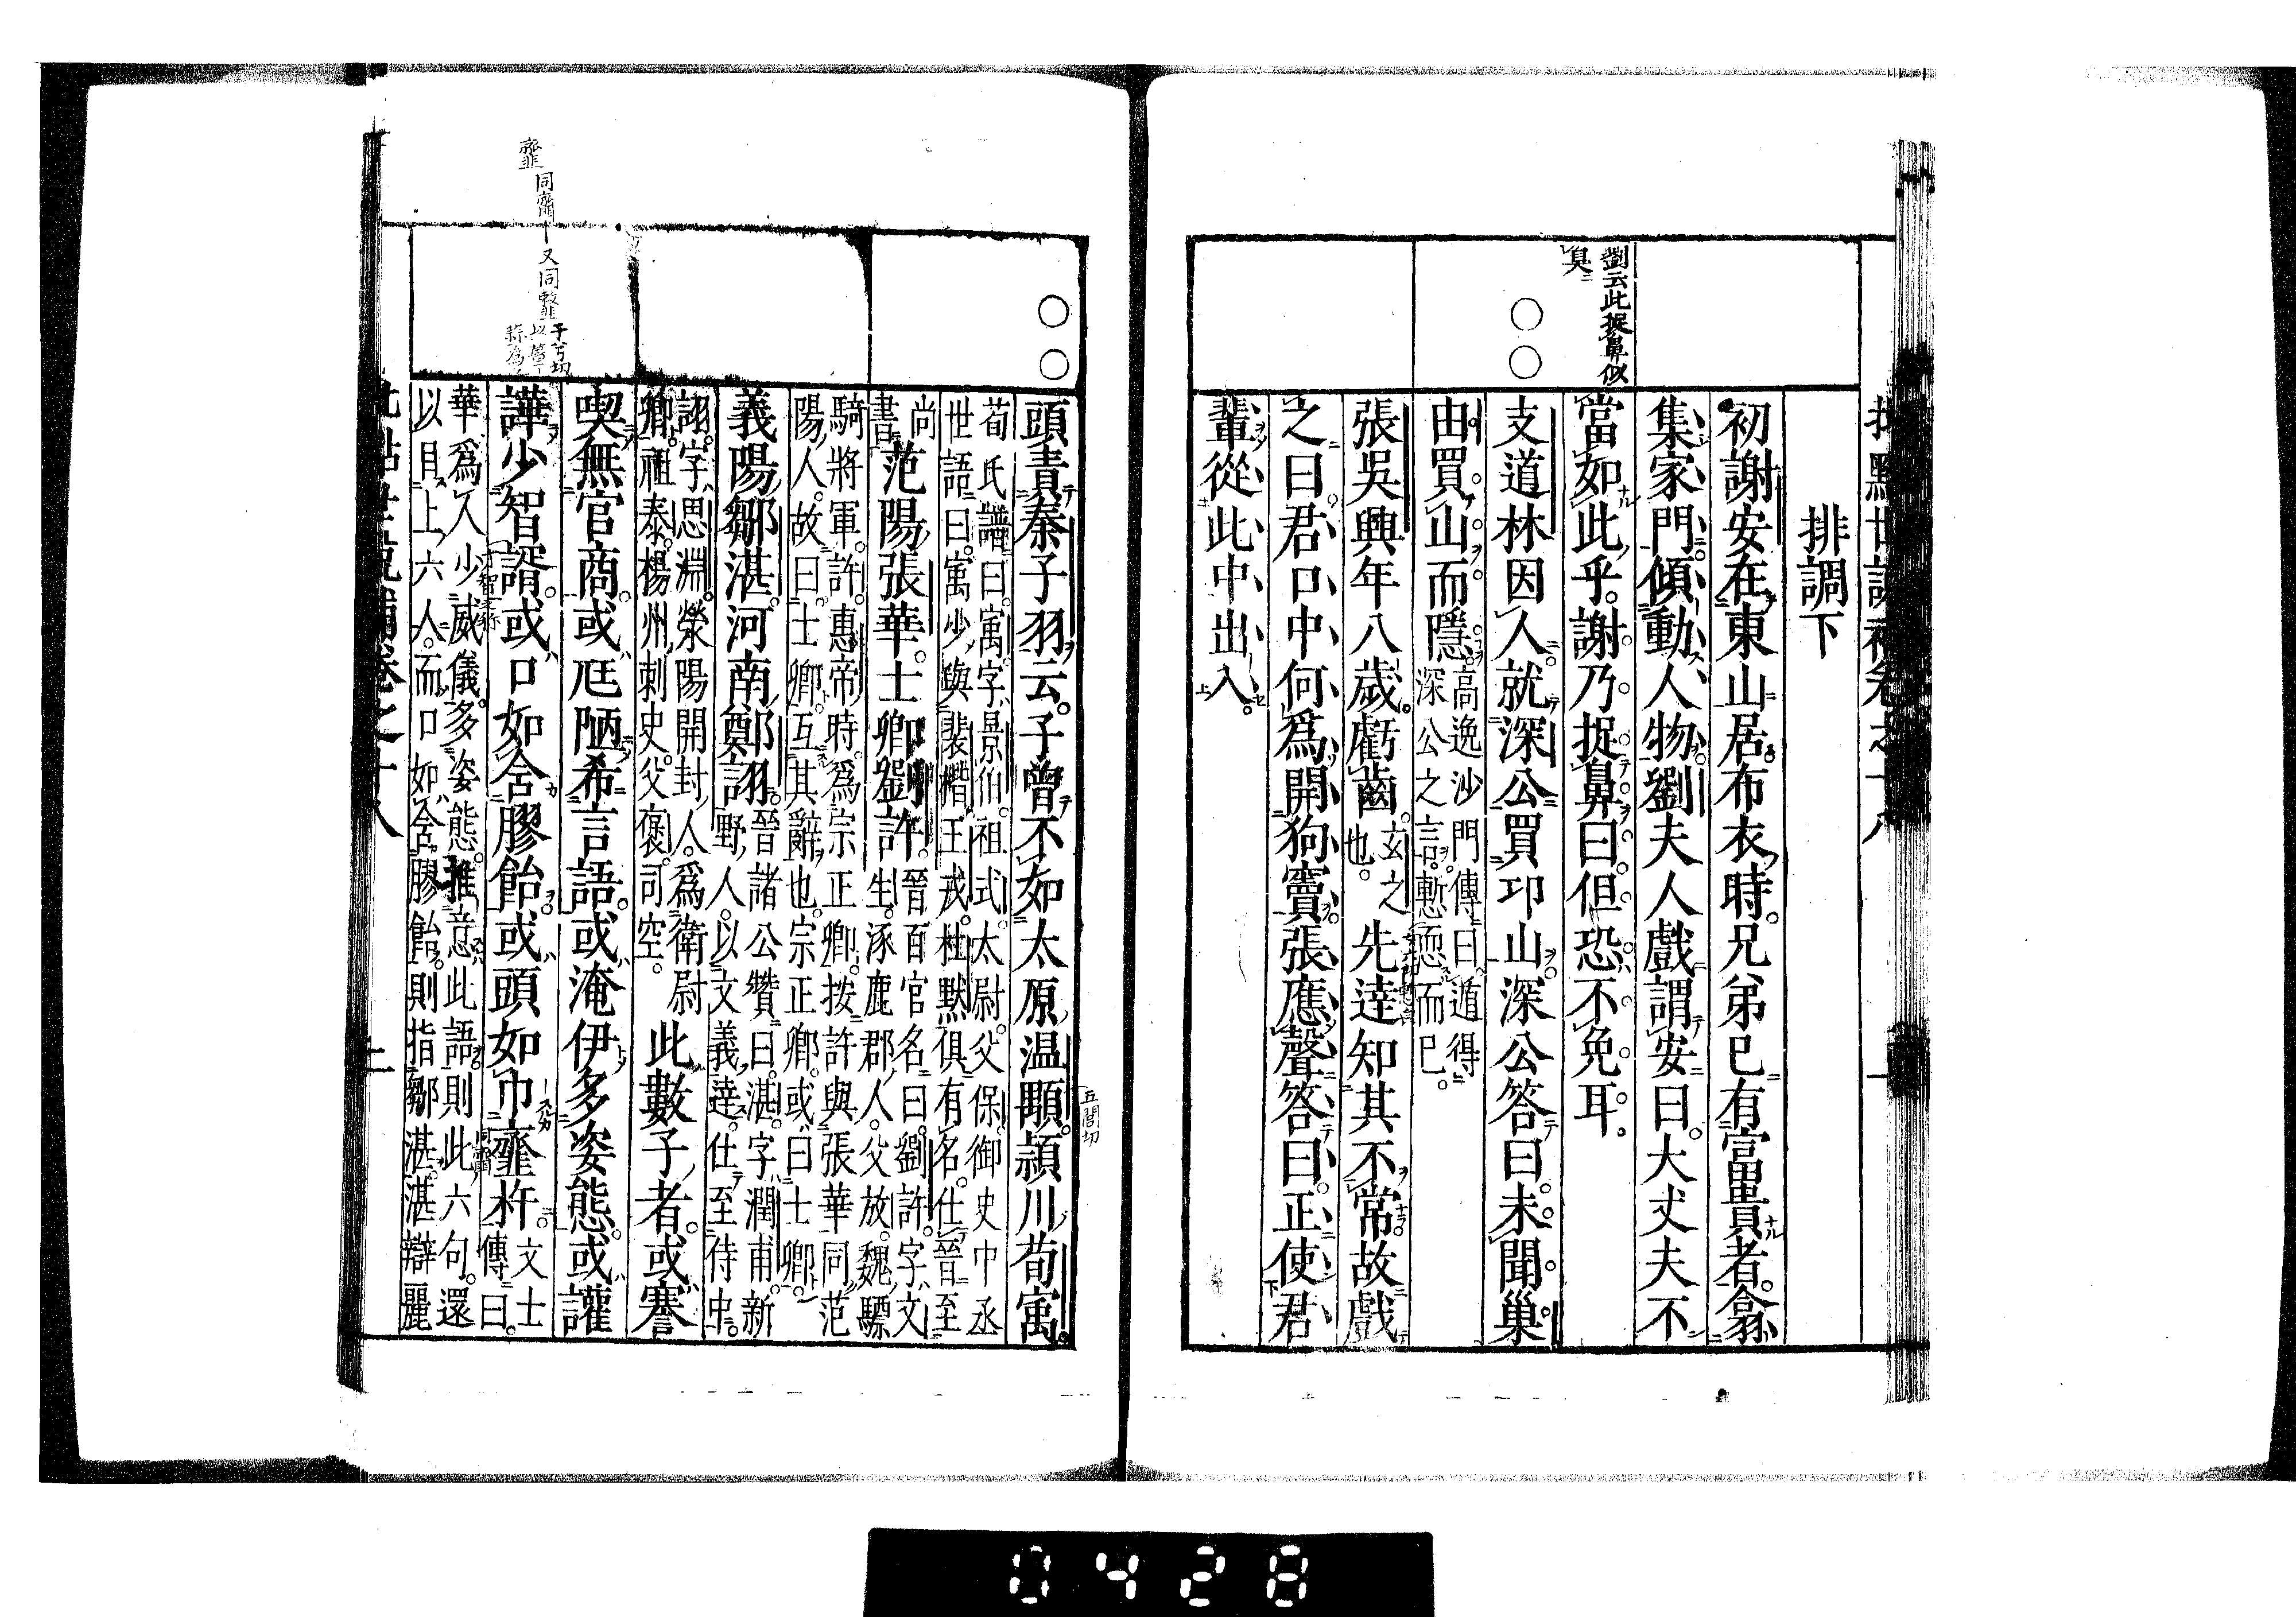 排調下
初謝安在東山居布衣時。兄弟已有富貴者。翕
集家門。傾動人物。劉夫人戲謂安曰。大丈夫不
當如此乎。謝乃捉鼻曰。但恐不免耳。
劉云此捉鼻似
臭
支道林因人就深公買印山。深公答曰。未聞巢
由買山而隱。
高逸沙門傳曰。遁得
深公之言。慙恧而已。
張吳興年八歲。虧齒。
玄之
也。
先達知其不常。故戲
之曰。君口中何爲開狗竇。張應聲答曰。正使君
輩從此中出入。
〇〇
〇〇
頭責秦子羽云。子曾不如太原温顒。潁川荀寓。
五間切
荀氏譜曰。寓字景伯。祖式。太尉。父保。御史中丞
世語曰。寓少與裴楷。王戎。杜默俱有名。仕晉至
尚
書
范陽張華。士卿劉許。
晉百官名曰。劉許。字文
生。涿鹿郡人。父放。魏驃
騎將軍。許。惠帝時。爲宗正卿。按許與張華同范
陽人。故曰。士卿。互其辭也。宗正卿。或曰士卿。
義陽鄒湛。河南鄭詡。
晉諸公贊曰。湛。字潤甫。新
野人。以文義達。仕至侍中。
詡。字思淵。滎陽開封人。爲衛尉
卿。祖泰。楊州刺史。父褒。司空。
此數子者。或謇
喫無官商。或尫陋希言語。或淹伊多姿態。或讙
譁少智諝。或口如含膠飴。或頭如巾韲杵。
文士
傳曰。
華爲人少威儀。多姿態。推意此語。則此六句。還
以目上六人。而口如含膠飴。則指鄒湛。湛辯麗
二
韲同齏
又同
子兮切